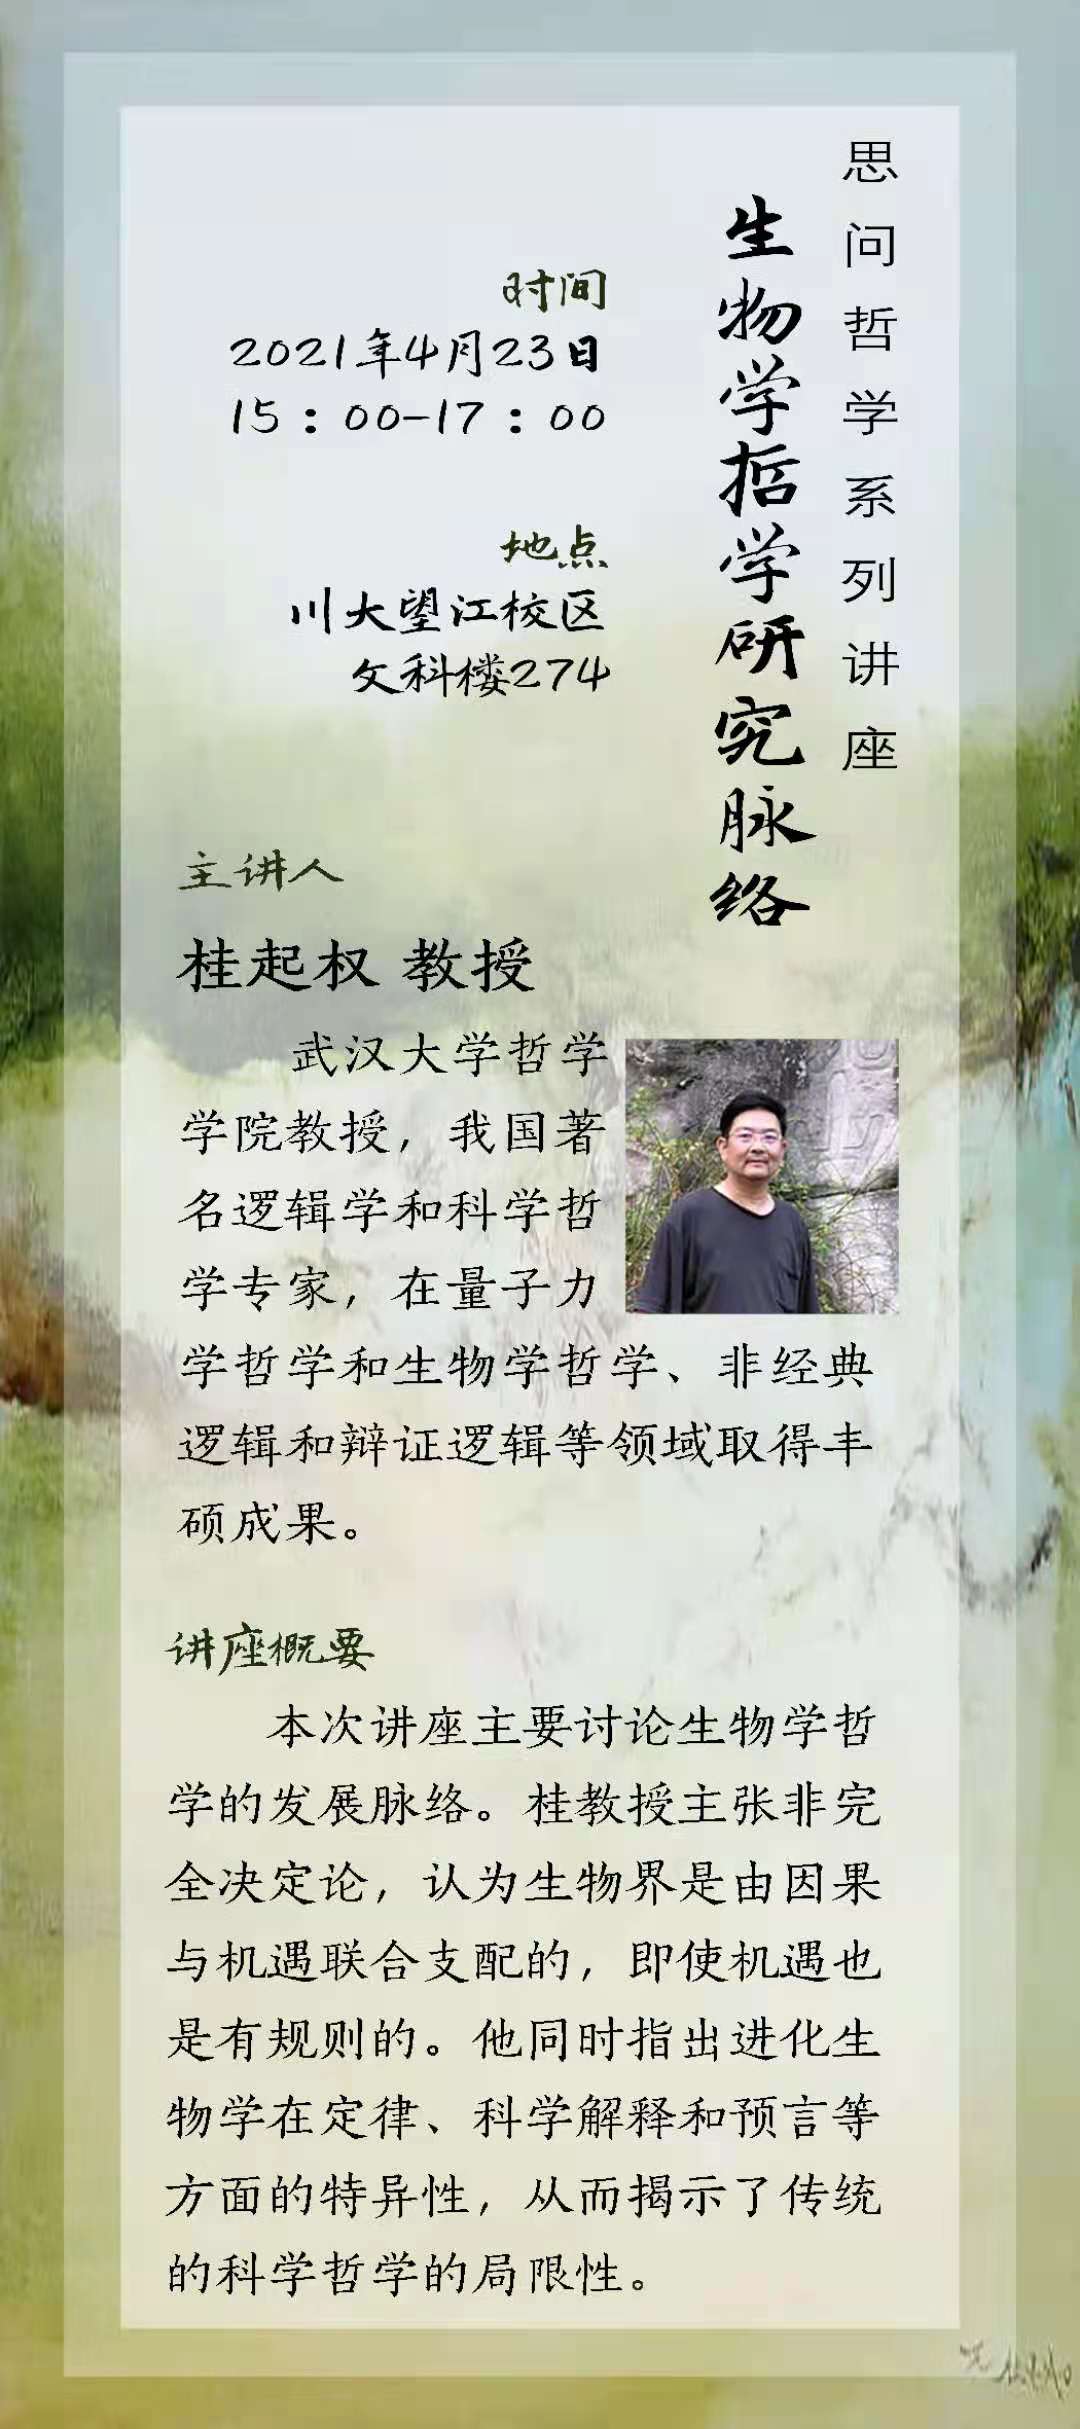 思问哲学系列讲座
生物学哲学研究脉络
时间
2021年4月23日
15：00-17：00
地点
川大望江校区
文科楼274
主讲人
桂起权 教授
武汉大学哲学
学院教授，我国著
名逻辑学和科学哲
学专家，在量子力
学哲学和生物学哲学、非经典
逻辑和辩证逻辑等领域取得丰
硕成果。
讲座概要
本次讲座主要讨论生物学哲
学的发展脉络。桂教授主张非完
全决定论，认为生物界是由因果
与机遇联合支配的，即使机遇也
是有规则的。他同时指出进化生
物学在定律、科学解释和预言等
方面的特异性，从而揭示了传统
的科学哲学的局限性。